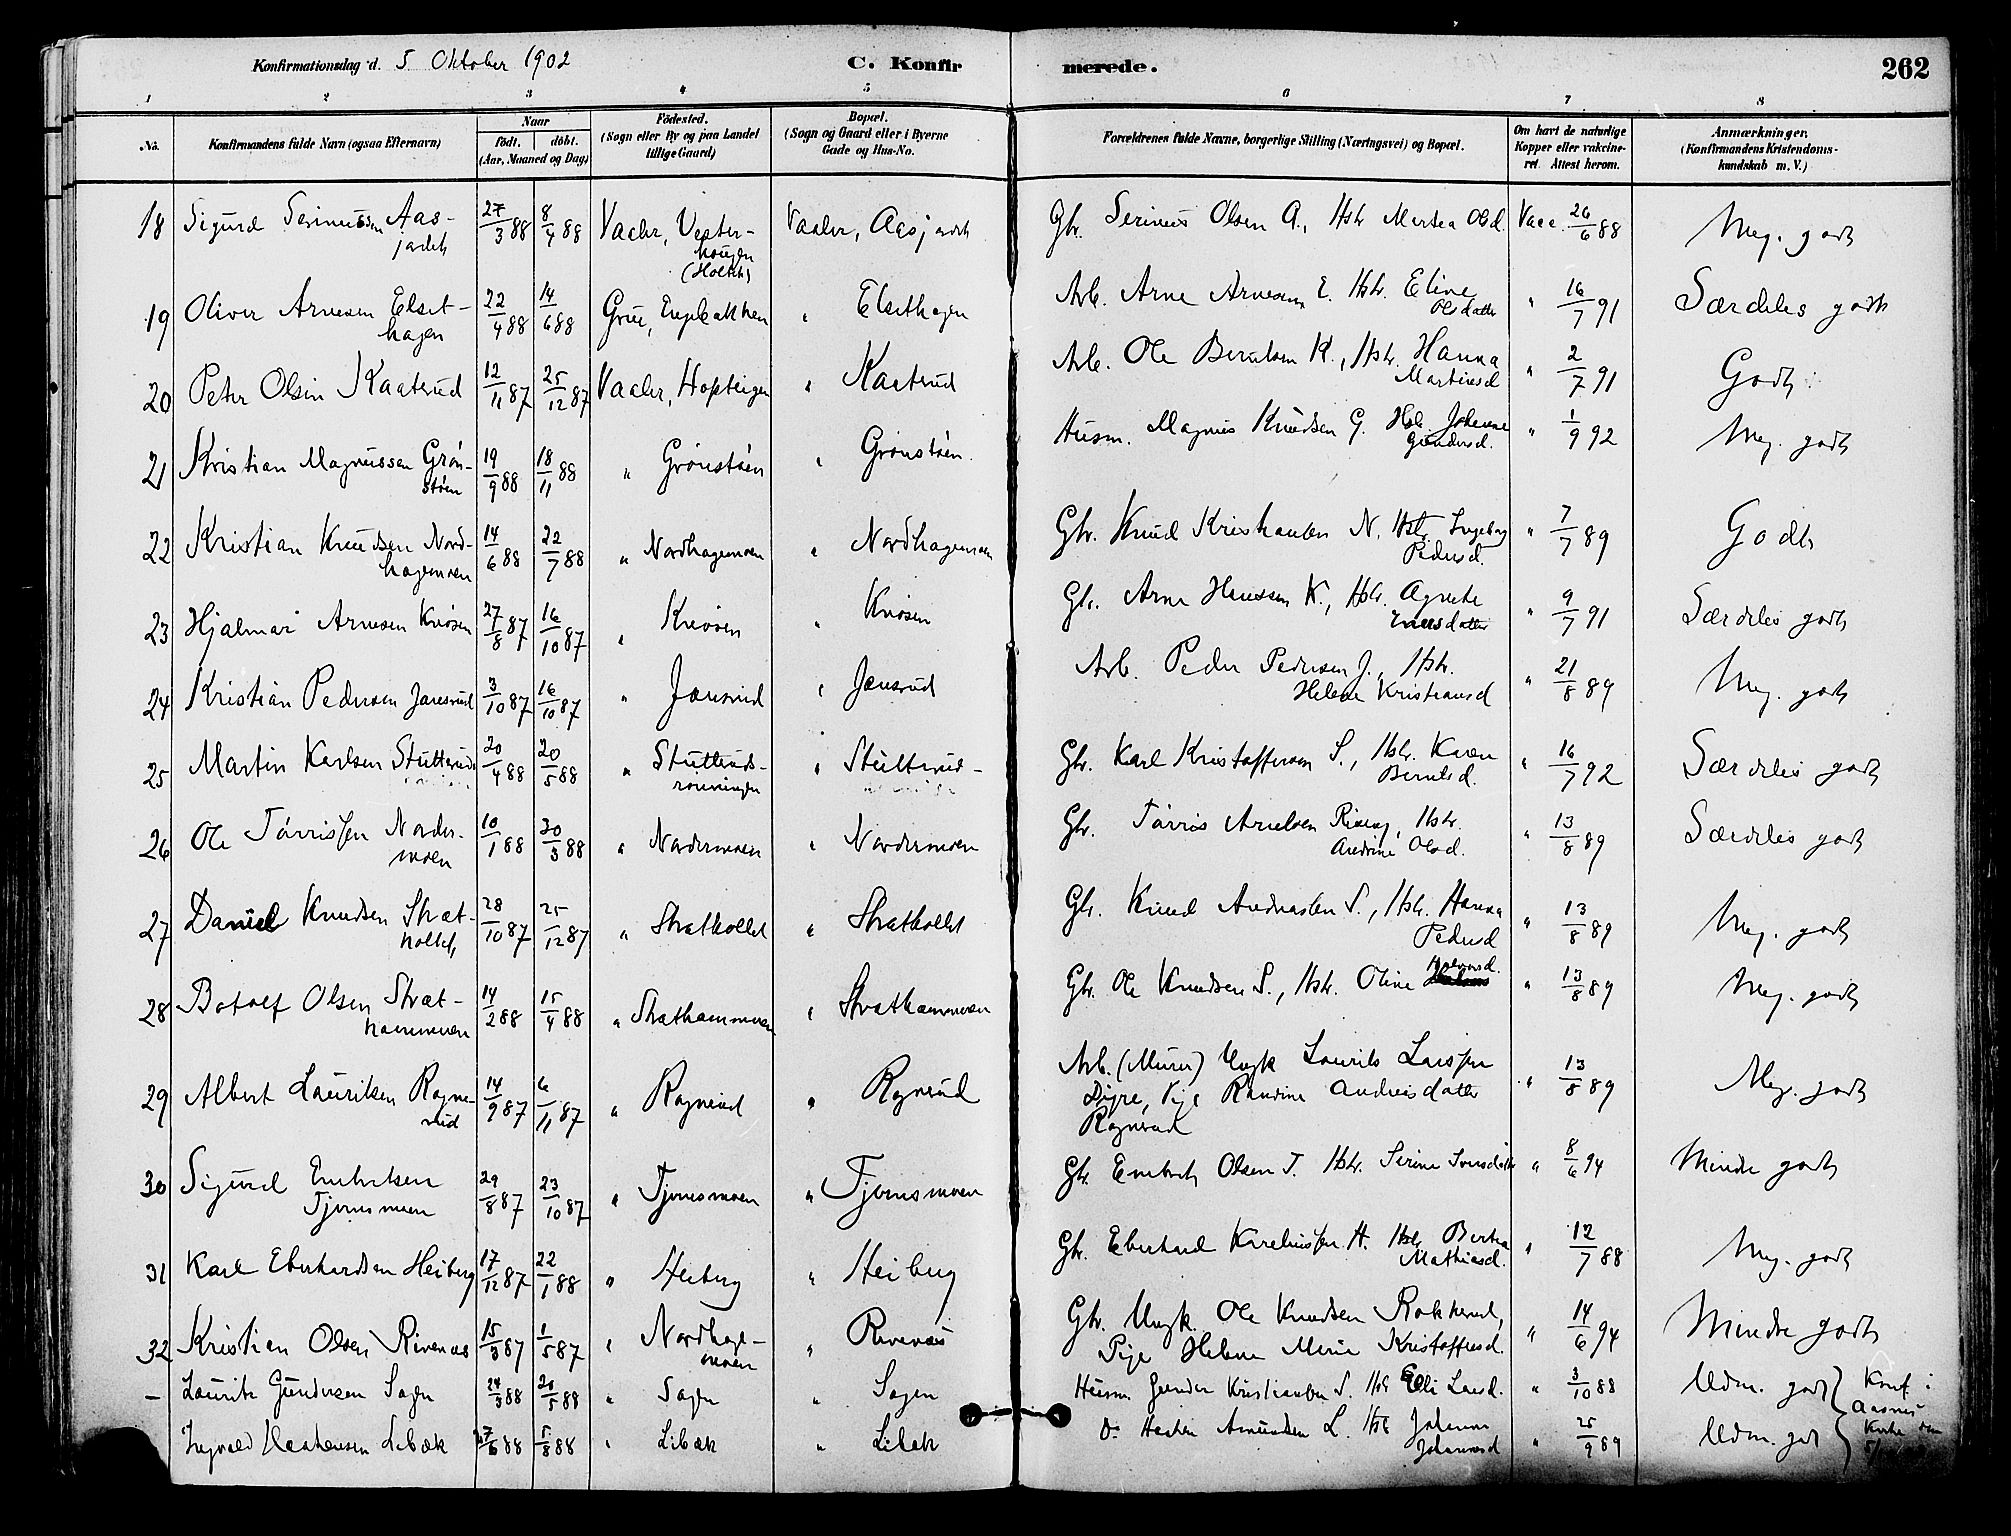 Konfirmationsdag d. 5 Oktober 1902 C. Konfirmerede. 262
1 2 3 4 5 6 7 8
No. Konfirmandens fulde Navn (ogsaa Efternavn) Naar født. døbt. (Aar, Maaned og Dag) Fødested. (Sogn eller By og paa Landet tillige Gaard) Bopæl. (Sogn og Gaard eller i Byerne Gade og Hus-No. Forældrenes fulde Navne, borgerlige Stilling (Næringsvei) og Bopæl. Om havt de naturlige Kopper eller vakcineret Attest herom. Anmærkninger. (Konfirmandens Kristendomskundskab m. V.)
18 Sigurd Serinussen Aasjordet 27/3 88 8/4 88 Vaaler, Vesterhaugen (Holtet) Vaaler, Aasjordet Gbr. Serinus Olsen A., Hstr. Martea Olsd. Vacc. 26/6 88 Meg. godt
19 Oliver Arnesen Elsethagen 22/4 88 14/6 88 Grue, " Elsethagen Arb. Arne Arnesen E. Hstr. Eline Olsdatter " 16/7 91 Særdeles godt
20 Peter Olsen Kaaterud 12/11 87 25/12 87 Vaaler, " Kaaterud Arb. Ole Berntsen K., Hstr. Hanna Martinsd " 2/7 91 Godt
21 Kristian Magnussen Grønstøen 19/9 88 18/11 88 " Grønstøen " Grønstøen Husm. Magnus Knudsen G. Hstr. Johanne Gundersd. " 1/9 92 Meg. godt
22 Kristian Knudsen Nordhagenmoen 14/6 88 22/7 88 " Nordhagenmoen " Nordhagenmoen Gbr. Knud Kristiansen N. Hstr. Ingeborg Pedersd. " 7/7 89 Godt
23 Hjalmar Arnesen Knøsen 27/8 87 16/10 87 " Knøsen " Knøsen Gbr. Arne Hanssen K., Hstr. Agnete " 9/7 91 Særdeles godt
24 Kristian Pedersen Jønsrud 3/10 87 16/10 87 " Jønsrud " Jønsrud Arb. Peder Pedersen J., Hstr. Helene Kristiansd " 21/8 89 Meg. godt
25 Martin Karlsen Stutterud 20/4 88 20/5 88 " Stutterudsrønningen " Stutterud- Gbr. Karl Kristoffersen S., Hstr. Karen Berntsd. " 16/7 92 Særdeles godt
26 Ole Tørrissen Nordermoen 10/1 88 30/3 88 " Nordermoen " Nordermoen Gbr. Tørris Arnesen Hstr. Andrine Olsd. " 13/8 89 Særdeles godt
27 Daniel Knudsen Strætkollet 28/10 87 25/12 87 " Strætkollet " Strætkollet Gbr. Knud Andreassen S., Hstr. Hanna Pedersd " 13/8 89 Meg. godt
28 Botolf Olsen Stræthammeren 14/2 88 15/4 88 " Stræthammeren " Stræthammeren Gbr. Ole Knudsen S., Hstr. Oline Halvorsd. " 13/8 89 Meg. godt
29 Albert Lauritsen Ragnerud 14/9 87 6/11 87 " Ragnerud " Ragnerud Arb. (Murer) Ungk Laurits Larssen Digre, Pige Randine Andreasdatter Ragnerud " 13/8 89 Meg. godt
30 Sigurd Embretsen Tjernsmoen 29/8 87 23/10 87 " Tjernsmoen " Tjernsmoen Gbr. Embret Olsen T. Hstr. Serine " 8/6 94 Mindre godt
31 Karl Eberhardsen Heiberg 17/12 87 22/1 88 " Heiberg " Heiberg Gbr. Eberhard Karelinssen H. Hstr. Bertea Mathiasd. " 12/7 88 Meg. godt
32 Kristian Olsen Rivenæs 15/3 87 1/5 87 " Nordhagenmoen " Rivenæs Gbr. Ungk. Ole Knudsen Rokkerud, Pige Helene Marie Kristoffersd. " 14/6 94 Mindre godt
– Laurits Gundersen Sagen 24/3 88 20/5 88 " Sagen " Sagen Husm. Gunder Kristiansen S. Hstr Eli Larsd. " 3/10 88 Udm. godt } Konf. i Aasnes Kirke den
Ingvald Lebæk 88 5/8 88 " Libæk " Libæk Do Amundsen L. Hstr Johanne Johannesd " 25/9 89 Udm. godt